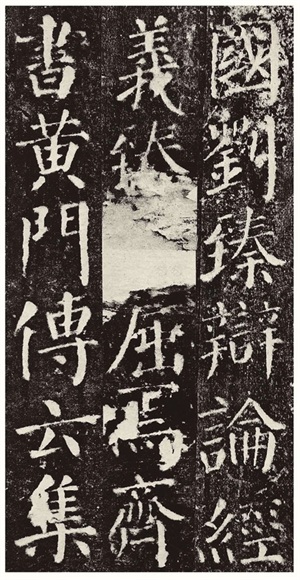 國劉臻辯論經
義屈焉齊
書黃門傳云集